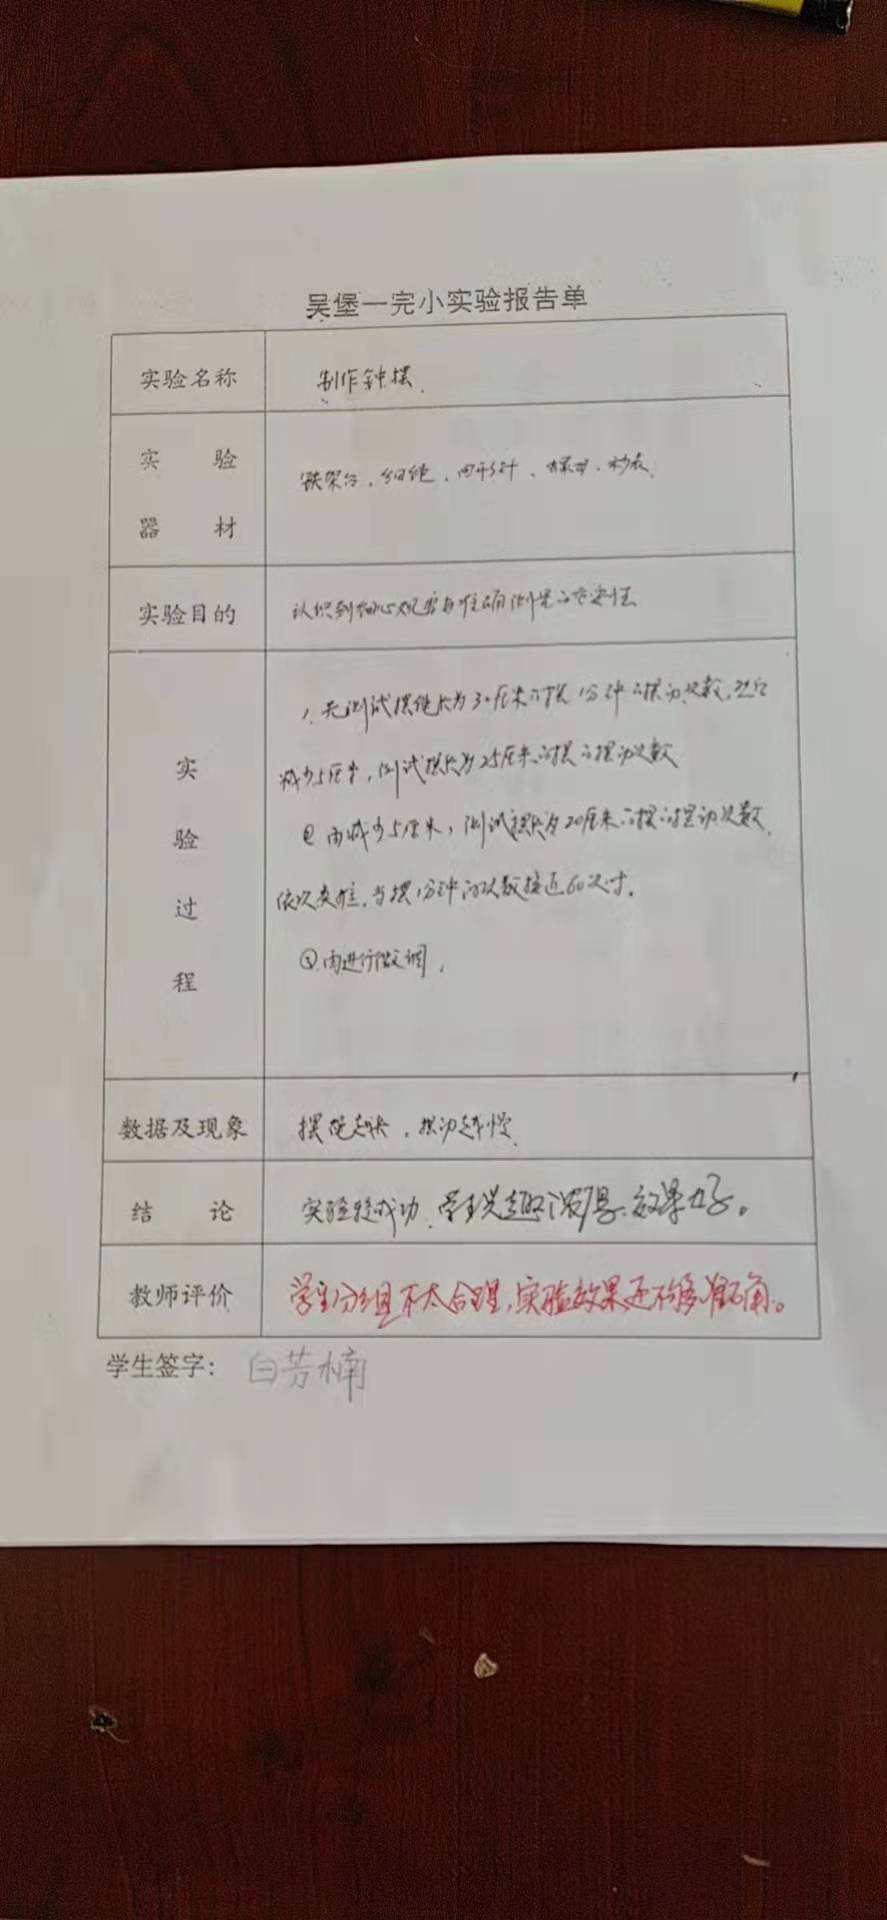 吴堡一完小实验报告单
实验名称 制作钟摆.
实验
器材
铁架台、细绳、回形针、螺母、秒表
实验目的 认识到细心观察与准确测量的重要性
实验过程
1、先测试摆绳长为30厘米的摆1分钟的摆动次数,然后
减少5厘米,测试摆长为25厘米的摆的摆动次数
② 再减少5厘米,测试摆长为20厘米的摆的摆动次数,
依次类推,当摆1分钟的次数接近60次时,
③再进行微调,
数据及现象 摆绳越长,摆动越慢
结论 实验较成功,学生兴趣浓厚,效果好。
教师评价 学生分组不太合理,实验效果还不够准确。
学生签字: 白芳楠